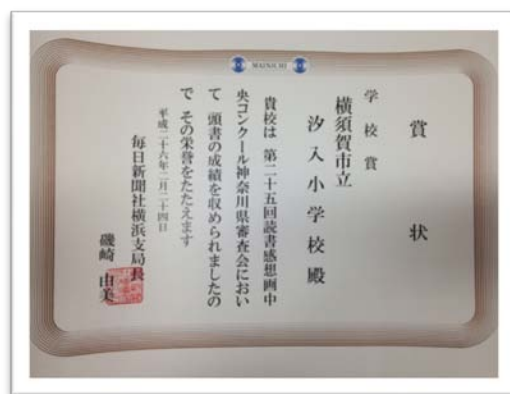 MAINICHI
賞状
学校賞
横須賀市立
汐入小学校殿
貴校は 第二十五回読書感想画中
央コンクール神奈川県審査会におい
て 頭書の成績を収められましたの
で その栄誉をたたえます
平成二十六年二月二十四日
毎日新聞社横浜支局長
磯崎由美